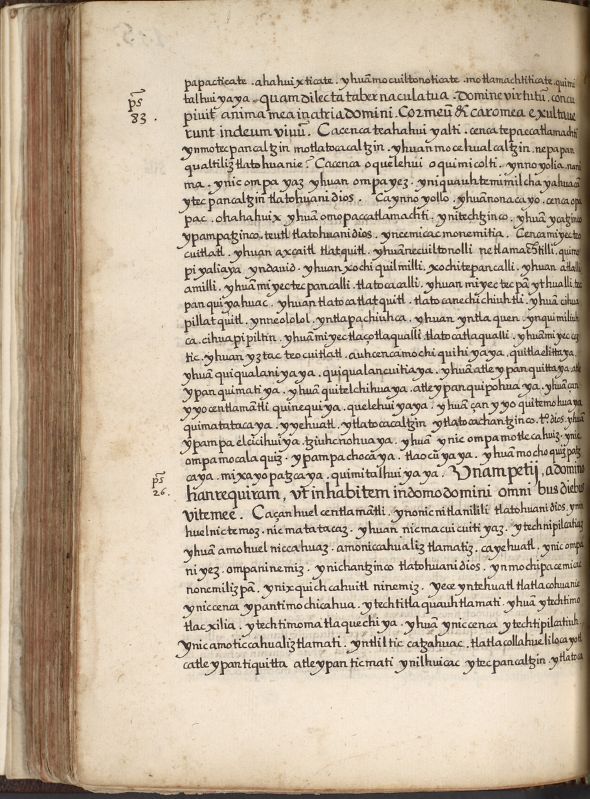 papacticate . ahahuixticate . yhuā mocuiltonoticate . motlamachtiticate . quimi
talhuiyaya . quam dilecta tabernacula tua . Domine virtutū . concu
ps 83 .
piuit anima mea in atria domini . Cor meū & caro mea exultaue
runt in deum viuū . Ca cenca teahahuiyalti . cenca tepaccatlamachti
yn motecpancaltzin motlatocacaltzin . yhuan mocehualcaltzin . ne pa pan
qualtiliz tlatohuanie ? Ca cenca oquelehui oquimicolti . ynno yolia . nani
ma . ynic ompa yaz yhuan ompa yez . yn iquauhtemimilcha yahuacā
ytecpancaltzin tlatohuani dios . Ca ynno yollo . yhuā nonacayo . cenca opa
pac . ohahahuix yhuā omopaccatlamachti . yn itechtzinco . yhuā ycatzinco
ypampatzinco . teutl tlatohuani dios . yn cemicac monemitia . Cenca miec teo
cuitlatl . yhuan axcaitl tlatquitl . yhuā necuiltonolli netlamachtilli . quimo
piyaliaya yn dauid . yhuan xochiquilmilli . xochitepancalli . yhuan atlalli
amilli . yhuā miyec tecpancalli . tlatocacalli . yhuan miyec tecpā ythualli tec
panquiyahuac . yhuan tlatocatlatquitl . tlatocanechichiuhtli . yhuā cihua
pillatquitl . ynneololol yntlapachiuhca . yhuan yntlaquen . yn quimiliuh
ca . cihuapipiltin . yhuā miyec tlaçotlaqualli tlatocatlaqualli . yhuā miyec coz
tic . yhuan yztac teocuitlatl . auh cenca mochi quihiyaya . quitlaelittaya .
yhuā quiqualaniyaya . quiqualancuitiaya . yhuā atle ypan quittaya . atle
ypan quimatiya . yhuā quitelchihuaya . atle ypan quipohuaya . yhuā çan
yyo centlamātli quinequiya . quelehuiyaya . yhuā çan yyo quitemohuaya
quimatatacaya . yyehuatl . ytlatocacaltzin ytlatocachantzinco . tt̄o dios . yhuā
ypampa elcicihuiya . tziuhcnohuaya . yhuā ynic ompa motlecahuiz . ynic
ompa mocalaquiz . ypampa chocaya . tlaocuyaya . yhuā mochoquizpatz
caya . mixayopatzcaya . quimitalhuiyaya . Vnam petij , a domino
ps 26 .
hanc requiram , vt inhabitem in domo domini omnibus diebus
vite mee . Ca çan huel centlamātli . ynonicnitlanilili tlatohuani dios . ynin
huel nictemoz . nicmatatacaz . yhuan nicmacuicuitiyaz . ytechnipilcatiaz
yhuā amo huel niccahuaz . amo niccahualiztlamatiz . ca yehuatl . ynic ompa
niyez . ompa ninemiz . ynichantzinco tlatohuani dios . ynmochipa cemicac
nonemilizpā . ynixquich cahuitl ninemiz . yece yntehuatl tlatlacohuanie
ynic cenca ypan timochicahua . ytech titlaquauhtlamati . yhuā ytech timo
tlacxilia . ytech timomatlaquechiya . yhuā ynic cenca ytech tipilcatiuh .
ynic amo ticcahualiztlamati . yntliltic catzahuac . tlatlacollahueliloca yotl
ca atle ypan tiquitta atle ypan ticmati ynilhuicac ytecpancaltzin ytlatoca